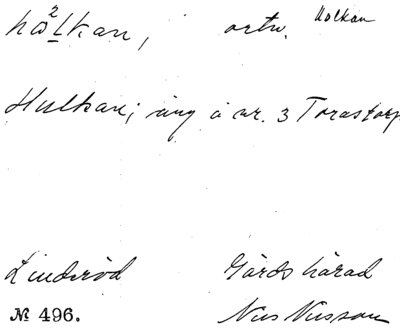 hω²lkan, ortn. Holkan
Hulkan; äng å nr. 3 Torastorp
Linderöd Gärds härad
№ 496. Nils Nilsson